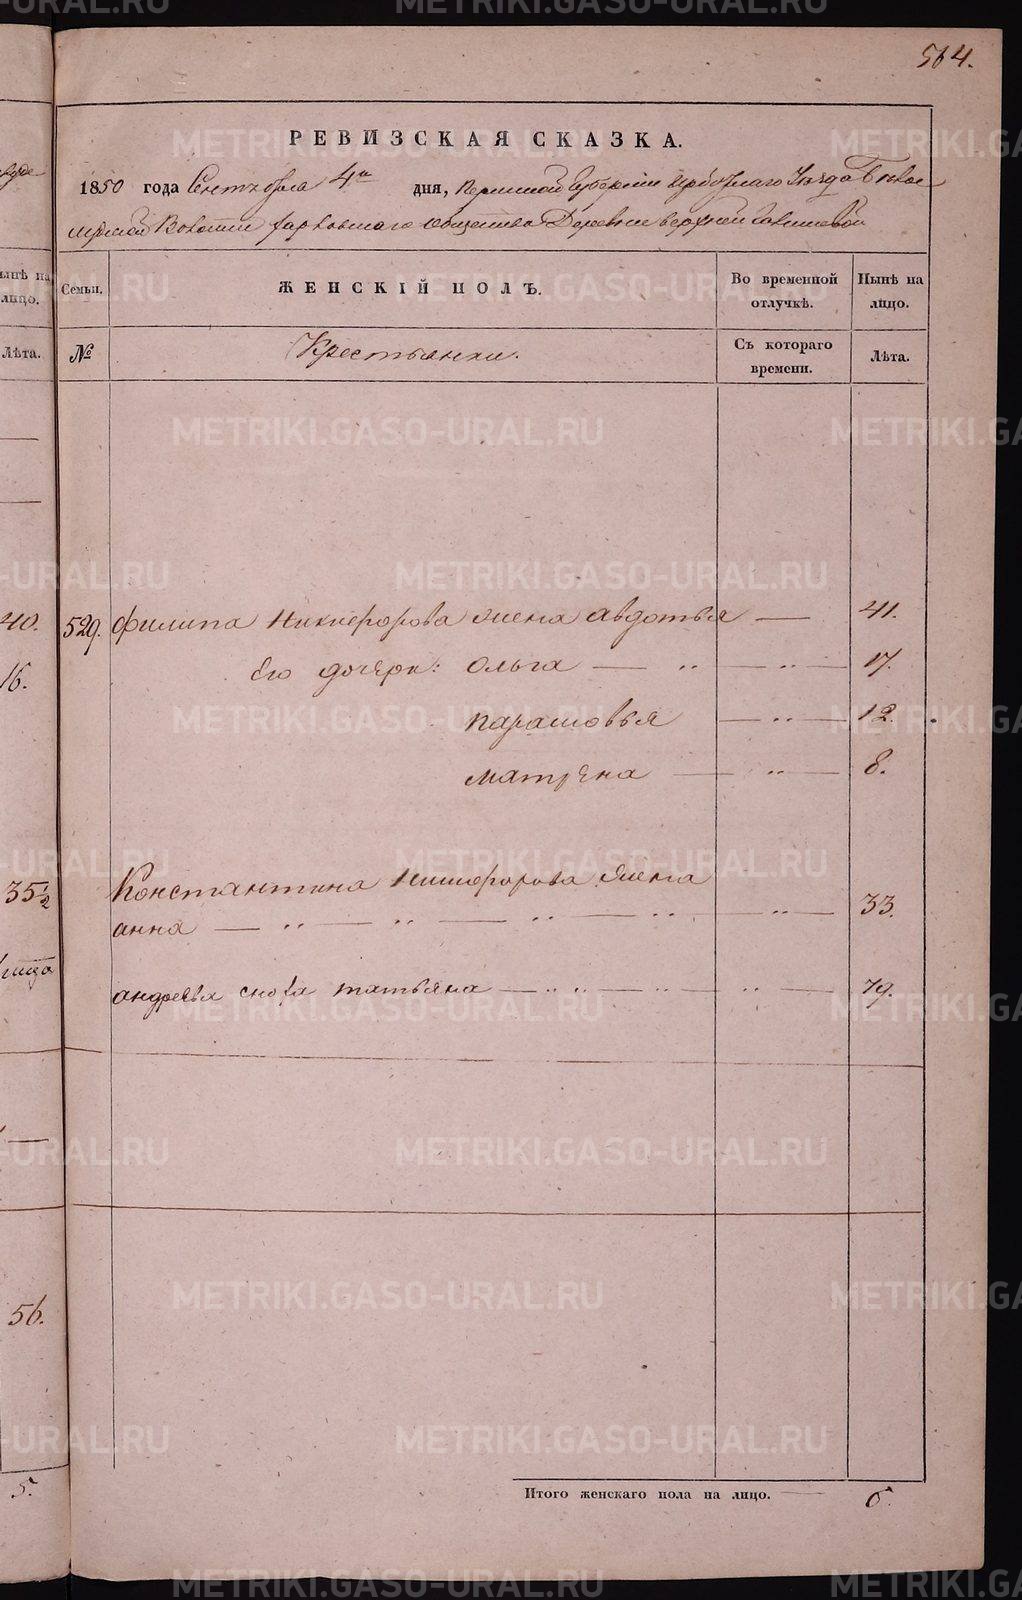 564.
РЕВИЗСКАЯ СКАЗКА.
1850 года Сентября 4го дня, Пермской Губернии Ирбитскаго Уезда
Волости Харловскаго общества Деревни верхней
Нынѣ на лицо.
Семьи.
ЖЕНСКІЙ ПОЛЪ.
Во временной отлучкѣ.
Нынѣ на лицо.
Лѣта.
№
Крестьянки.
Съ котораго времени.
Лѣта.
40. 529. Филипа Никифорова жена Авдотья — 41.
16. Его дочери: Ольга — „ — „ — 17.
Парасковья — „ — 12.
Матрена — „ — 8.
35½ Константина Никифорова жена
анна — „ — „ — „ — „ — „ — 33.
андреева сноха татьяна — „ „ — „ — „ — 79.
56.
5.
Итого женскаго пола на лицо. — 6.
METRIKI.GASO-URAL.RU